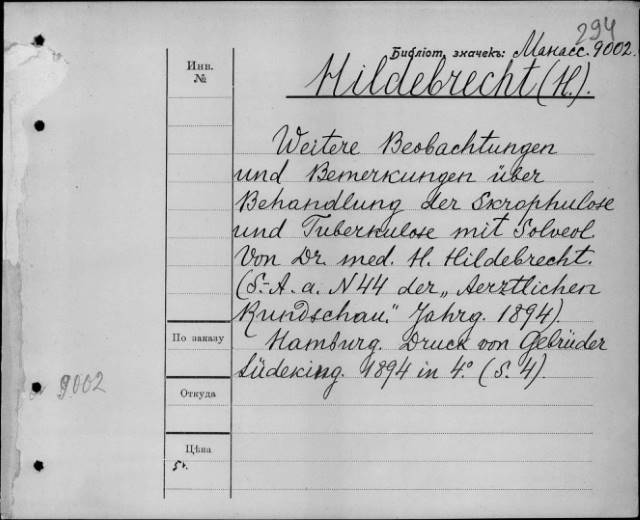 294
Библіот. значекъ: Манасс. 9002.
Инв.
№
Hildebrecht (H.).
Weitere Beobachtungen
und Bemerkungen über
Behandlung der Skrophulose
und Tuberkulose mit Solveol.
Von Dr. med. H. Hildebrecht.
(S.-A. a. N 44 der „Aerztlichen
Rundschau." Jahrg. 1894)
По заказу
Hamburg. Druck von Gebrüder
Lüdeking. 1894 in 4° (S. 4).
9002
Откуда
Цѣна